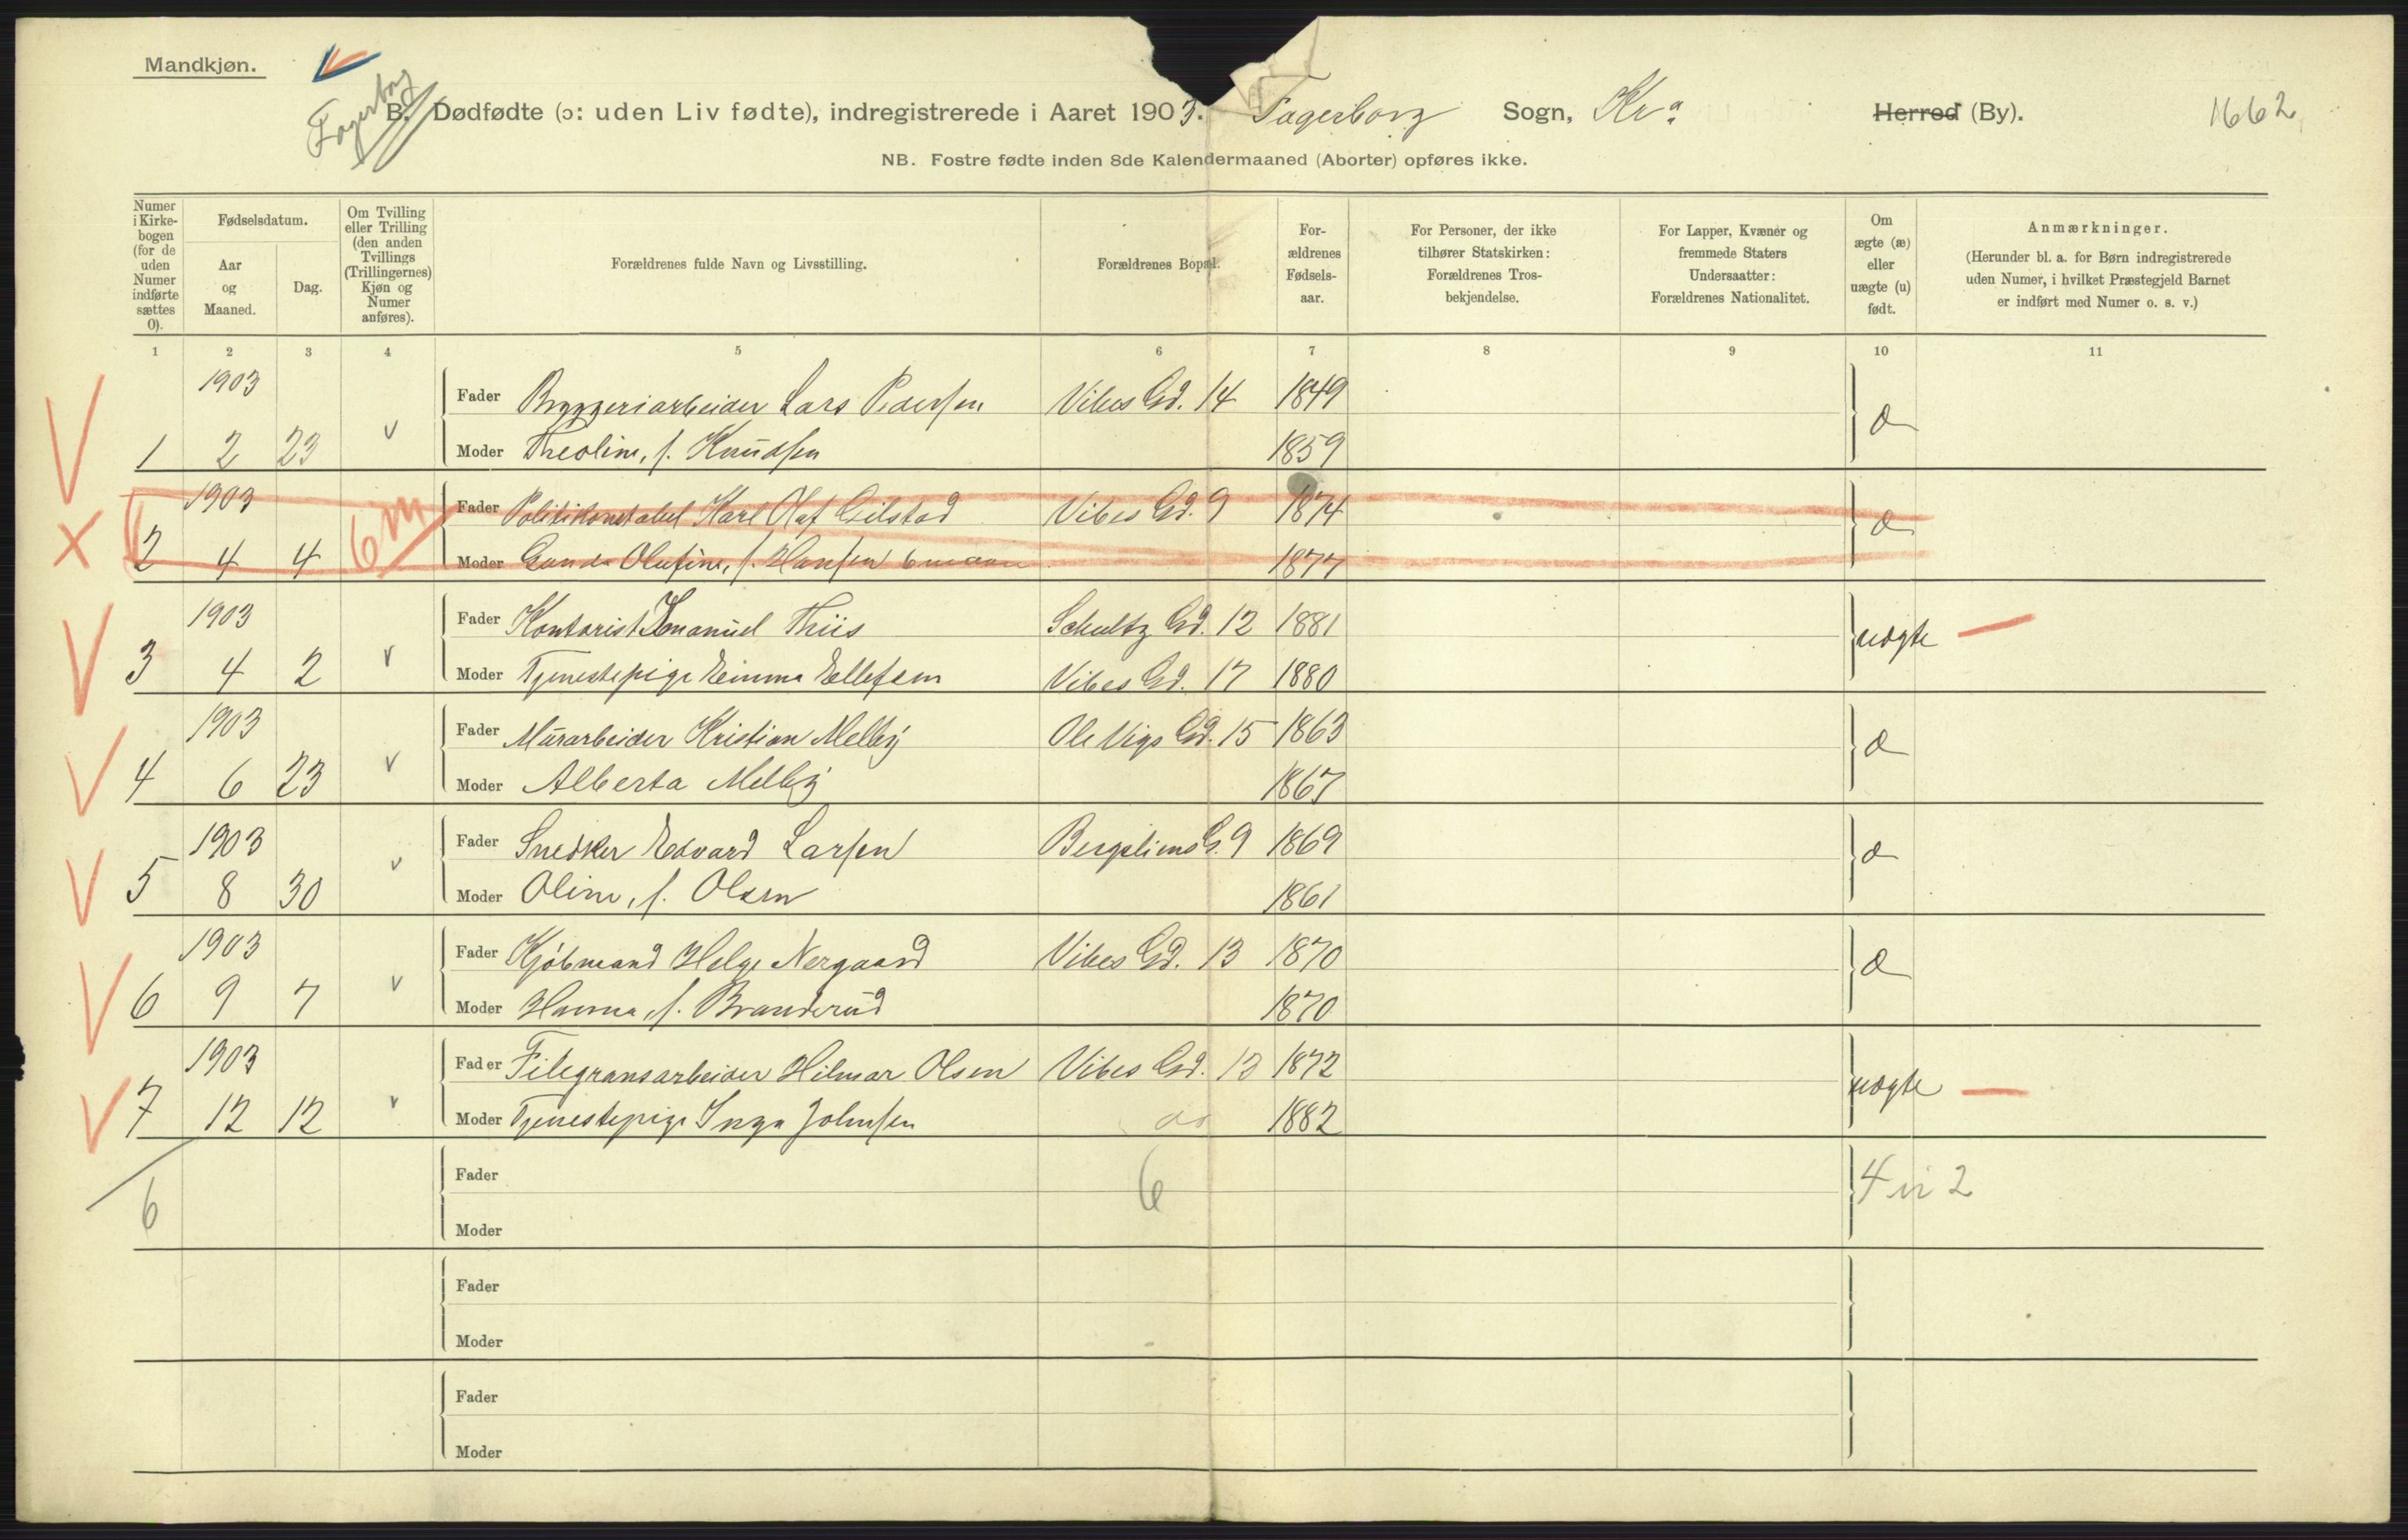 Mandkjøn.
Fagerborg
B. Dødfødte (ɔ: uden Liv fødte), indregistrerede i Aaret 1903. Fagerborg Sogn, Kra Herred (By). 1662
NB. Fostre fødte inden 8de Kalendermaaned (Aborter) opføres ikke.
Numer i Kirke-bogen (for de uden Numer indførte sættes 0).
Fødselsdatum.
Aar og Maaned.
Dag.
Om Tvilling eller Trilling (den anden Tvillings (Trillingernes) Kjøn og Numer anføres).
Forældrenes fulde Navn og Livsstilling.
Forældrenes Bopæl.
For-ældrenes Fødsels-aar.
For Personer, der ikke tilhører Statskirken: Forældrenes Tros-bekjendelse.
For Lapper, Kvæner og fremmede Staters Undersaatter: Forældrenes Nationalitet.
Om ægte (æ) eller uægte (u) født.
Anmærkninger.
(Herunder bl. a. for Børn indregistrerede uden Numer, i hvilket Præstegjeld Barnet er indført med Numer o. s. v.)
1 2 3 4 5 6 7 8 9 10 11
1903 Fader Bryggeriarbeider Lars Pedersen Vibes Gd. 14 1849 æ
1 2 23 v Moder Theoline, f. Knudsen 1859
1903 Fader Politikonstabel Karl Olaf Gilstad Vibes Gd. 9 1874 æ
2 4 4 6 m Moder Olufine, f. Hansen 6 maan 1877
1903 Fader Kontorist Emanuel Thiis Schultz Gd. 12 1881 uægte —
3 4 2 v Moder Tjenestepige Emma Ellefsen Vibes Gd. 17 1880
1903 Fader Murarbeider Kristian Melby Ole Vigs Gd. 15 1863 æ
4 6 23 v Moder Alberta Melby 1867
1903 Fader Snedker Edvard Larsen Bergsliens G. 9 1869 æ
5 8 30 v Moder Oline, f. Olsen 1861
1903 Fader Kjøbmand Helge Nergaard Vibes Gd. 13 1870 æ
6 9 7 v Moder Hanna, f. Branderud 1870
1903 Fader Filegransarbeider Hilmar Olsen Vibes Gd. 13 1872 uægte —
7 12 12 v Moder Tjenestepige Inga Johnsen do 1882
Fader 6 4 u 2
6 Moder
Fader
Moder
Fader
Moder